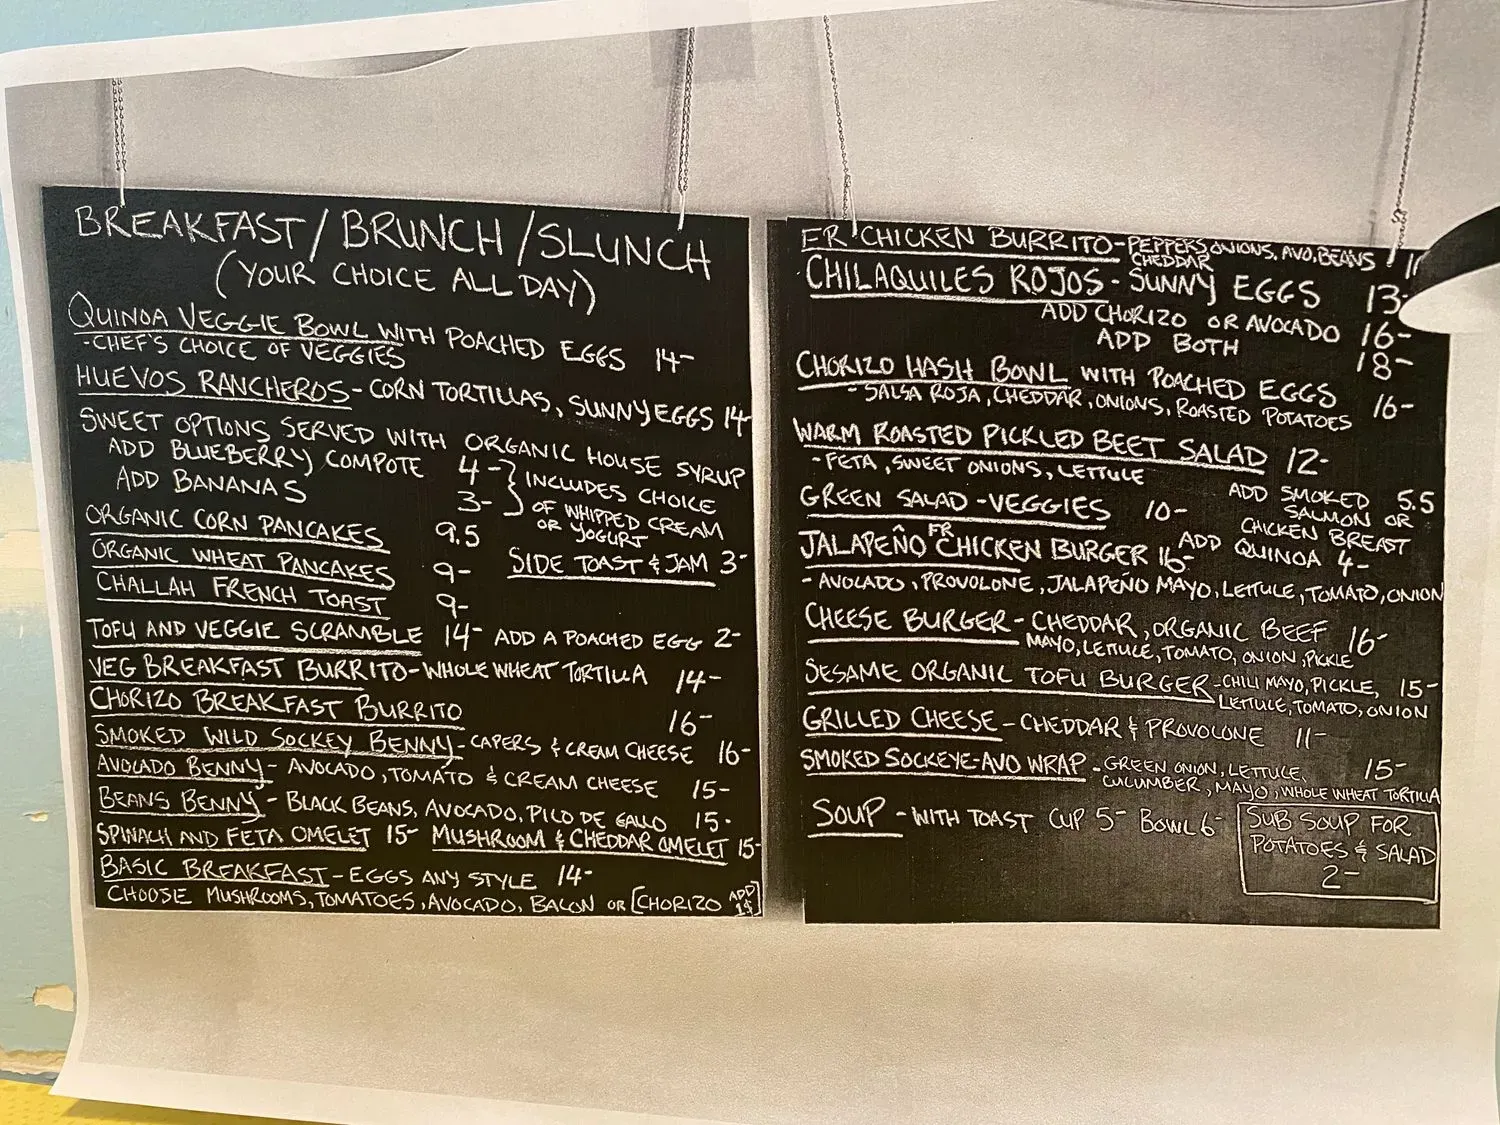 BREAKFAST/BRUNCH/SLUNCH
(YOUR CHOICE ALL DAY)
QUINOA VEGGIE BOWL WITH POACHED EGGS 14-
-CHEF'S CHOICE OF VEGGIES
HUEVOS RANCHEROS-CORN TORTILLAS, SUNNY EGGS 14-
SWEET OPTIONS SERVED WITH ORGANIC HOUSE SYRUP
ADD BLUEBERRY COMPOTE 4-
ADD BANANAS 3-
INCLUDES CHOICE
OF WHIPPED CREAM
OR YOGURT
ORGANIC CORN PANCAKES 9.5
ORGANIC WHEAT PANCAKES 9-
SIDE TOAST & JAM 3-
CHALLAH FRENCH TOAST 9-
TOFU AND VEGGIE SCRAMBLE 14- ADD A POACHED EGG 2-
VEG BREAKFAST BURRITO-WHOLE WHEAT TORTILLA 14-
CHORIZO BREAKFAST BURRITO 16-
SMOKED WILD SOCKEY BENNY-CAPERS & CREAM CHEESE 16-
AVOCADO BENNY-AVOCADO, TOMATO & CREAM CHEESE 15-
BEANS BENNY-BLACK BEANS, AVOCADO, PICO DE GALLO 15-
SPINACH AND FETA OMELET 15- MUSHROOM & CHEDDAR OMELET 15-
BASIC BREAKFAST-EGGS ANY STYLE 14-
CHOOSE MUSHROOMS, TOMATOES, AVOCADO, BACON OR [CHORIZO ADD 1$]
FR CHICKEN BURRITO-PEPPERS, ONIONS, AVO, BEANS
CHEDDAR
CHILAQUILES ROJOS-SUNNY EGGS 13-
ADD CHORIZO OR AVOCADO 16-
ADD BOTH 18-
CHORIZO HASH BOWL WITH POACHED EGGS 16-
-SALSA ROJA, CHEDDAR, ONIONS, ROASTED POTATOES
WARM ROASTED PICKLED BEET SALAD 12-
-FETA, SWEET ONIONS, LETTUCE
ADD SMOKED 5.5
SALMON OR
CHICKEN BREAST
GREEN SALAD-VEGGIES 10-
ADD QUINOA 4-
JALAPEÑO FR CHICKEN BURGER 16-
-AVOCADO, PROVOLONE, JALAPEÑO MAYO, LETTUCE, TOMATO, ONION
CHEESE BURGER-CHEDDAR, ORGANIC BEEF 16-
MAYO, LETTUCE, TOMATO, ONION, PICKLE
SESAME ORGANIC TOFU BURGER-CHILI MAYO, PICKLE, 15-
LETTUCE, TOMATO, ONION
GRILLED CHEESE-CHEDDAR & PROVOLONE 11-
SMOKED SOCKEYE-AVO WRAP-GREEN ONION, LETTUCE, 15-
CUCUMBER, MAYO, WHOLE WHEAT TORTILLA
SOUP-WITH TOAST CUP 5- BOWL 6-
SUB SOUP FOR
POTATOES & SALAD
2-